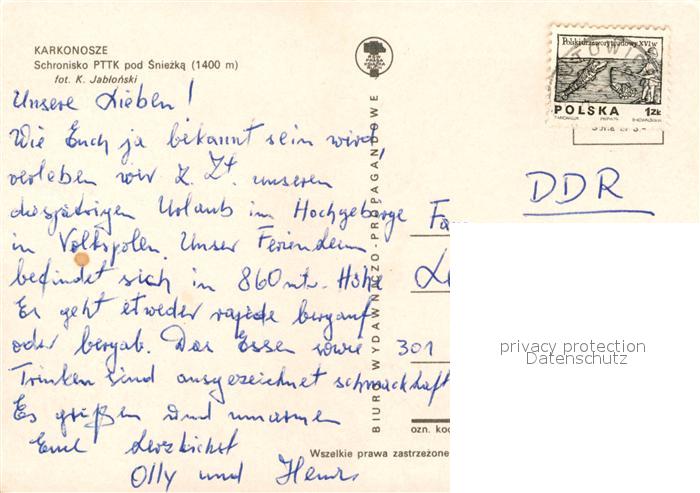 KARKONOSZE
Schronisko PTTK pod Śnieżką (1400 m)
fot. K. Jabłoński
Unsere Lieben!
Wie Euch ja bekannt sein wird,
verleben wir z. Zt. unseren
diesjährigen Urlaub im Hochgebirge
in Volkspolen. Unser Ferienheim
befindet sich in 860 mtr. Höhe
Es geht etweder rapide bergauf
oder bergab. Das Essen sowie
Trinken sind ausgezeichnet schmackhaft
Es grüßen und umarmen
Euch herzlichst
Olly und
BIURO WYDAWNICZO-PROPAGANDOWE
Polski drzeworyt ludowy XVI w
POLSKA 1ZŁ
DDR
Fa
301
ozn. kod
Wszelkie prawa zastrzeżone
privacy protection
Datenschutz